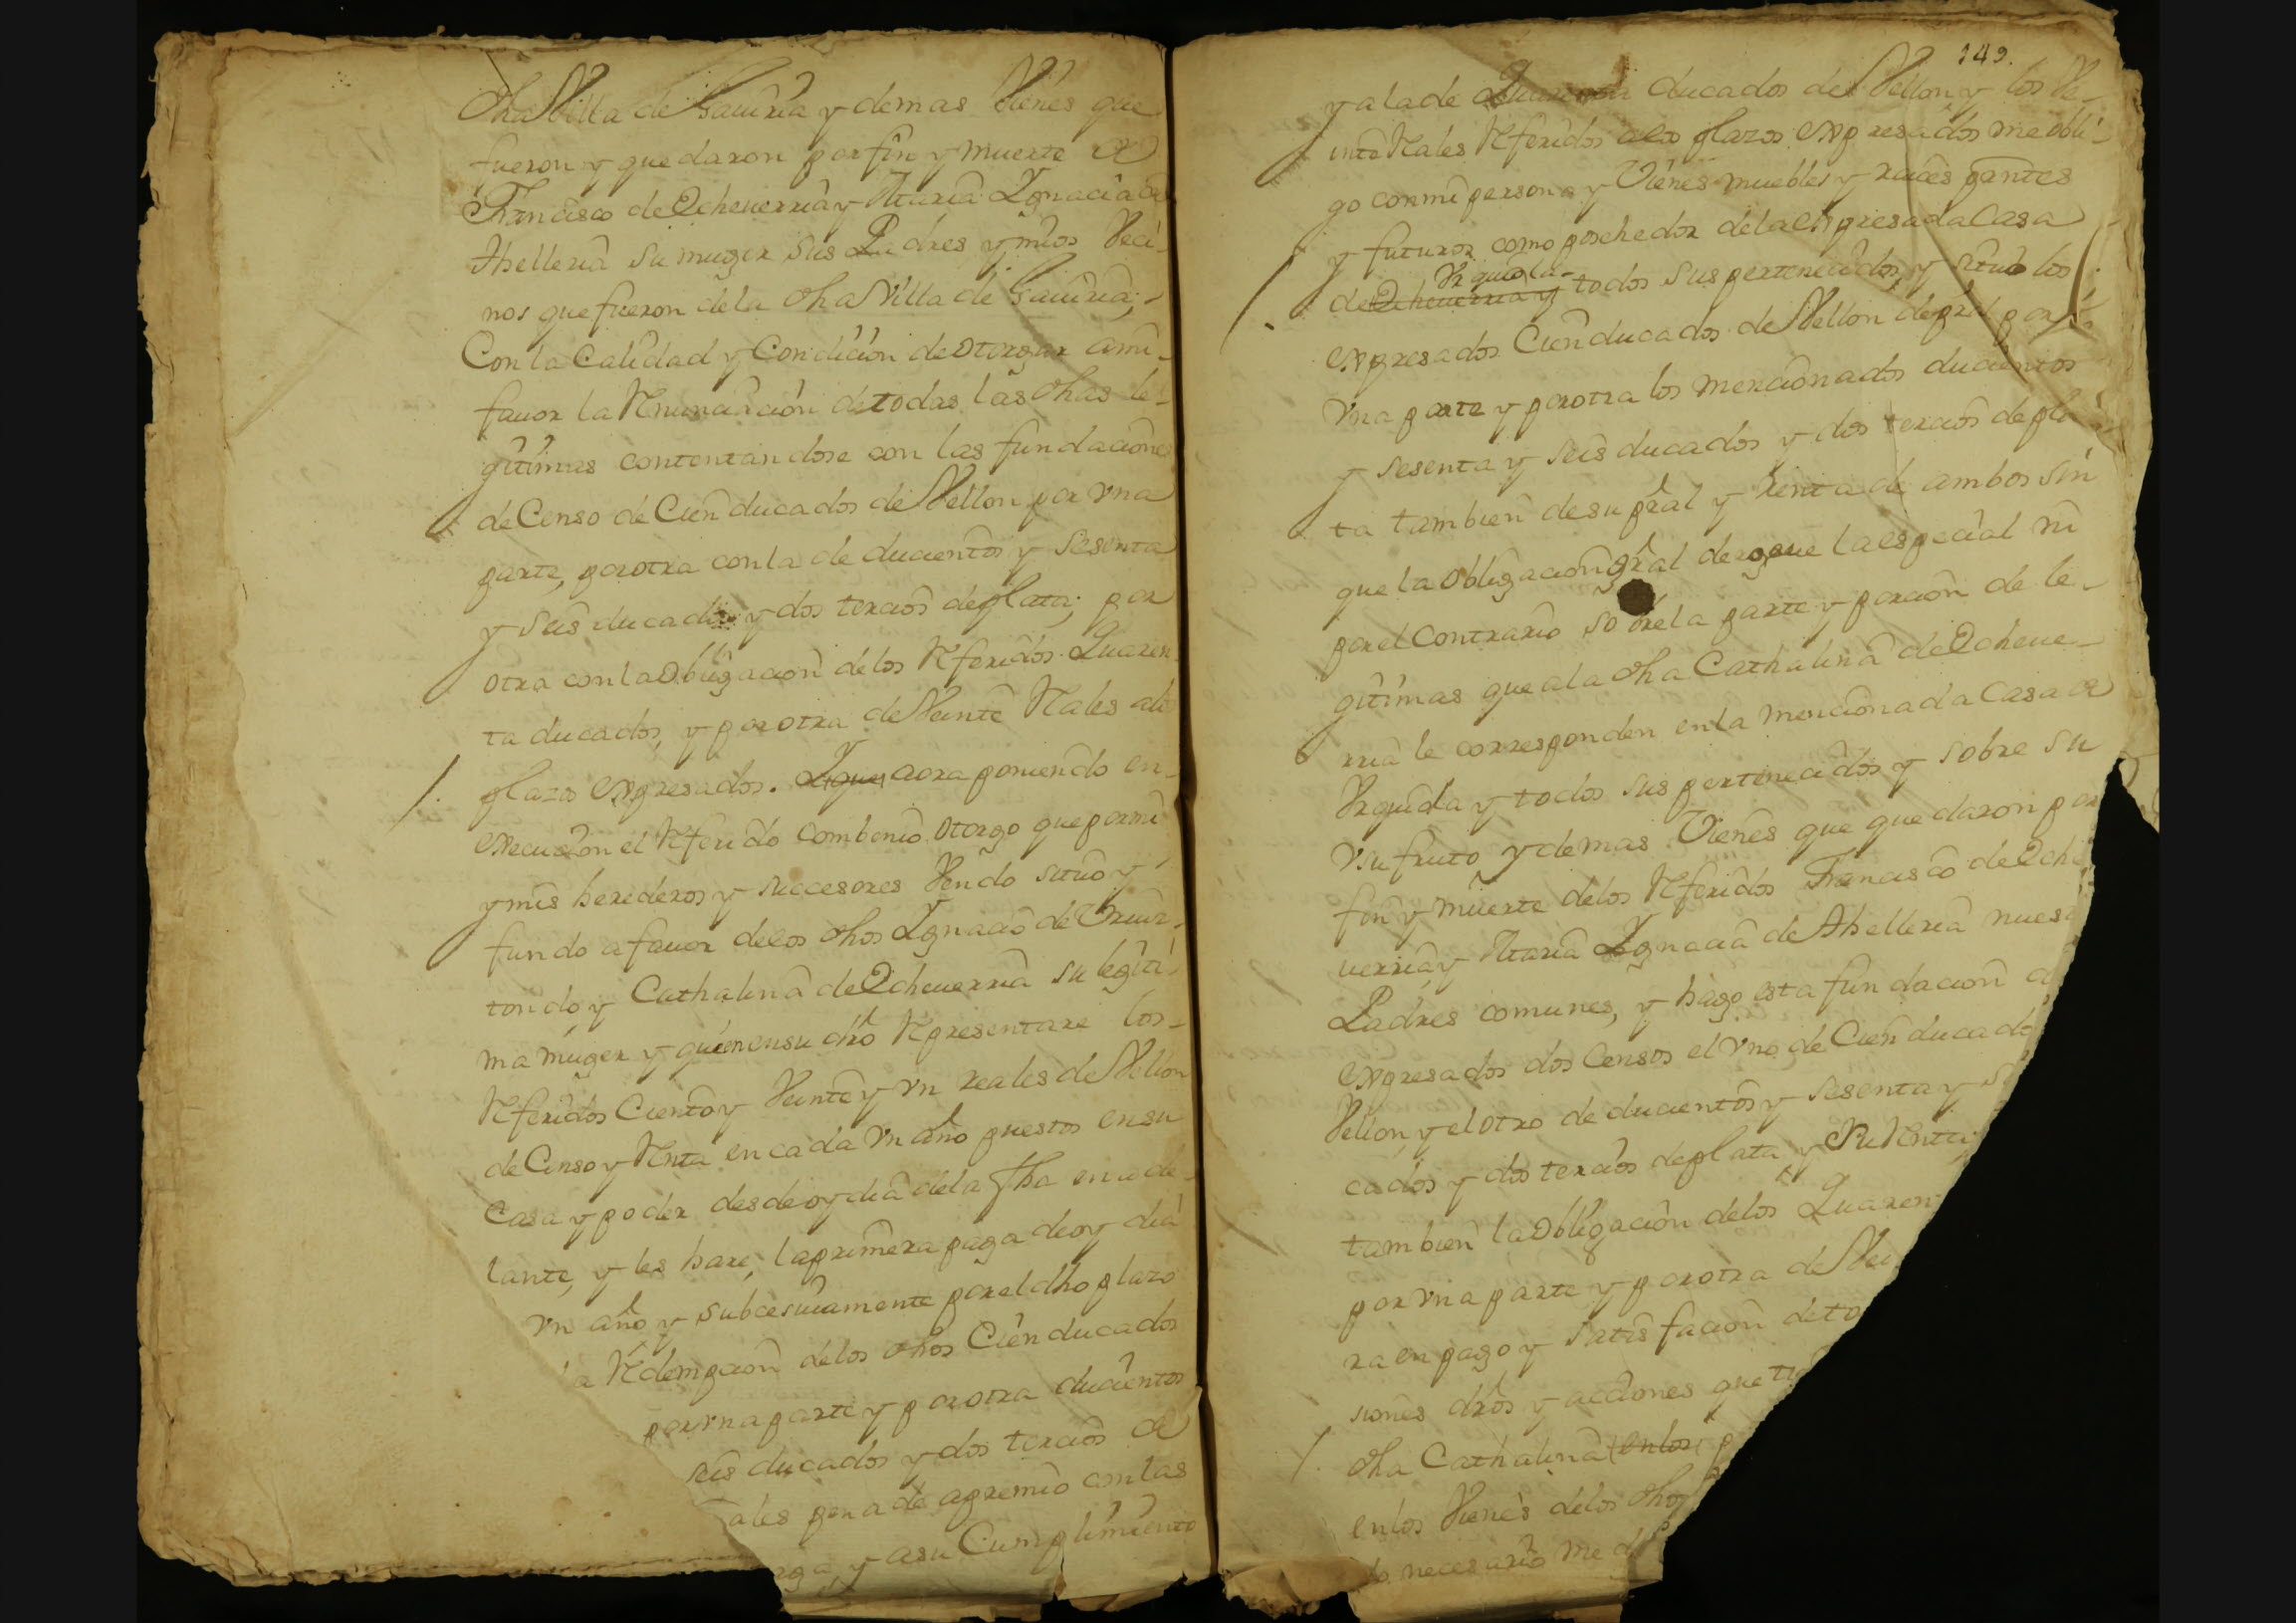 dha Villa de Gaviria y demas Vienes que
fueron y quedaron por fin y muerte de
Francisco de Echeverria y Maria Ygnacia de
Abelleria su muger sus Padres y mios Veci-
nos que fueron de la dha Villa de Gaviria,
Con la Calidad y Condicion de otorgar a mi
favor la Renunciacion de todas las dhas le-
gitimas contentandose con las fundaciones
de Censo de Cien ducados de Vellon por vna
parte, por otra con la de ducientos y sesenta
y seis ducados y dos tercios de plata; por
otra con la Obligacion de los Referidos Quaren-
ta ducados, y por otra de Veinte Reales a los
plazos expresados. Y que aora poniendo en
execucion el Referido combenio otorgo que por mi
y mis herederos y succesores Vendo situo y
fundo a favor de los dhos Ygnacio de
tondo y Cathalina de Echeverria su legiti-
ma muger y quien en su dro Representare los
Referidos Ciento y Veinte y vn reales de Vellon
de Censo y Renta en cada vn año puestos en su
Casa y poder desde oy dia de la fha en ade-
lante, y les hare la primera paga de oy dia
vn año y subcesivamente por el dho plazo
la Redempcion de los dhos Cien ducados
por vna parte y por otra ducientos
seis ducados y dos tercios de
ales pena de apremio con las
rga, y a su Cumplimiento
149.
y a la de Quarenta ducados de Vellon y los Ve-
inte Reales Referidos a los plazos expresados me obli-
go con mi persona y Vienes muebles y raices pressntes
y futuros como posehedor de la expresada Casa
Vrquiola
de Echeverria y todos sus pertenecidos, y situo los
expresados Cien ducados de Vellon de pral por
vna parte y por otra los mencionados ducientos
y sesenta y seis ducados y dos tercios de pla-
ta tambien de su pral y renta de ambos sin
que la Obligacion gral derogue la especial ni
por el Contrario sobre la parte y porcion de le-
gitimas que a la dha Cathalina de Echeve-
rria le corresponden en la mencionada Casa de
Vrquiola y todos sus pertenecidos y sobre su
vsufruto y demas Vienes que quedaron por
fin y muerte de los Referidos Francisco de Eche
verria y Maria Ygnacia de Abelleria nues
Padres comunes, y hago esta fundacion d
expresados dos Censos el vno de Cien ducado
Vellon y el otro de ducientos y sesenta y s
cados y dos tercios de plata y su Renta;
tambien la Obligacion de los Quaren
por vna parte y por otra de Vei
ra en pago y satisfacion de to
siones dros y acciones que ti
dha Cathalina en los p
en los Vienes de los dhos
lo necesario me d